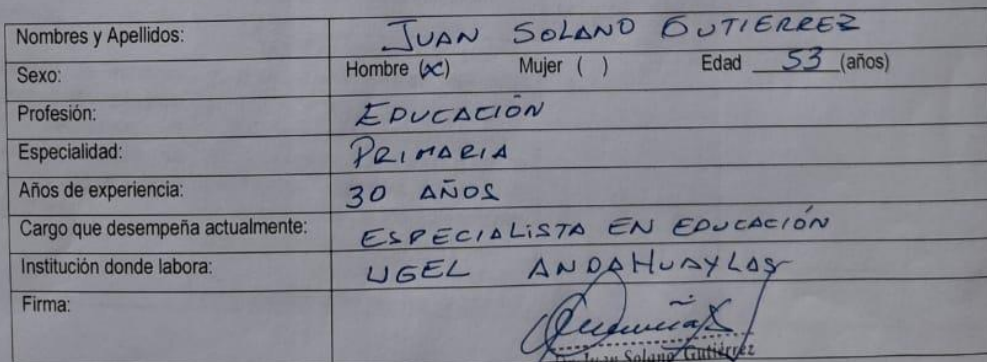 Nombres y Apellidos: JUAN SOLANO GUTIERREZ
Sexo: Hombre (x) Mujer ( ) Edad 53 (años)
Profesión: EDUCACIÓN
Especialidad: PRIMARIA
Años de experiencia: 30 AÑOS
Cargo que desempeña actualmente: ESPECIALISTA EN EDUCACIÓN
Institución donde labora: UGEL ANDAHUAYLAS
Firma:
Juan Solano Gutiérrez